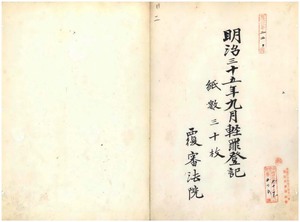 明治三十五年九月輕罪登記
紙數三十枚
覆審法院